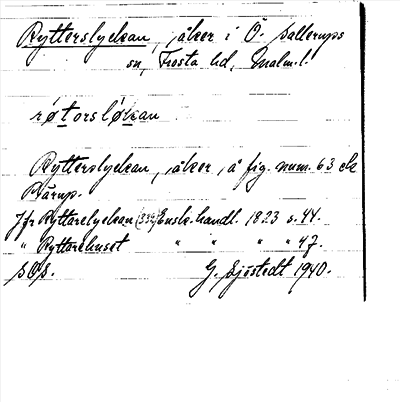 Rytterslyckan, åker i Ö. Sallerups
sn, Frosta hd, Malm. l.
røtorsløkan
Rytterslyckan, åker, å fig. num. 63 ck
Bårup.
Jfr Ryttarelyckan (332) Enskr. handl. 1823 s. 44.
" Ryttarehuset " " " " 47.
SOS. G. Sjöstedt 1940.